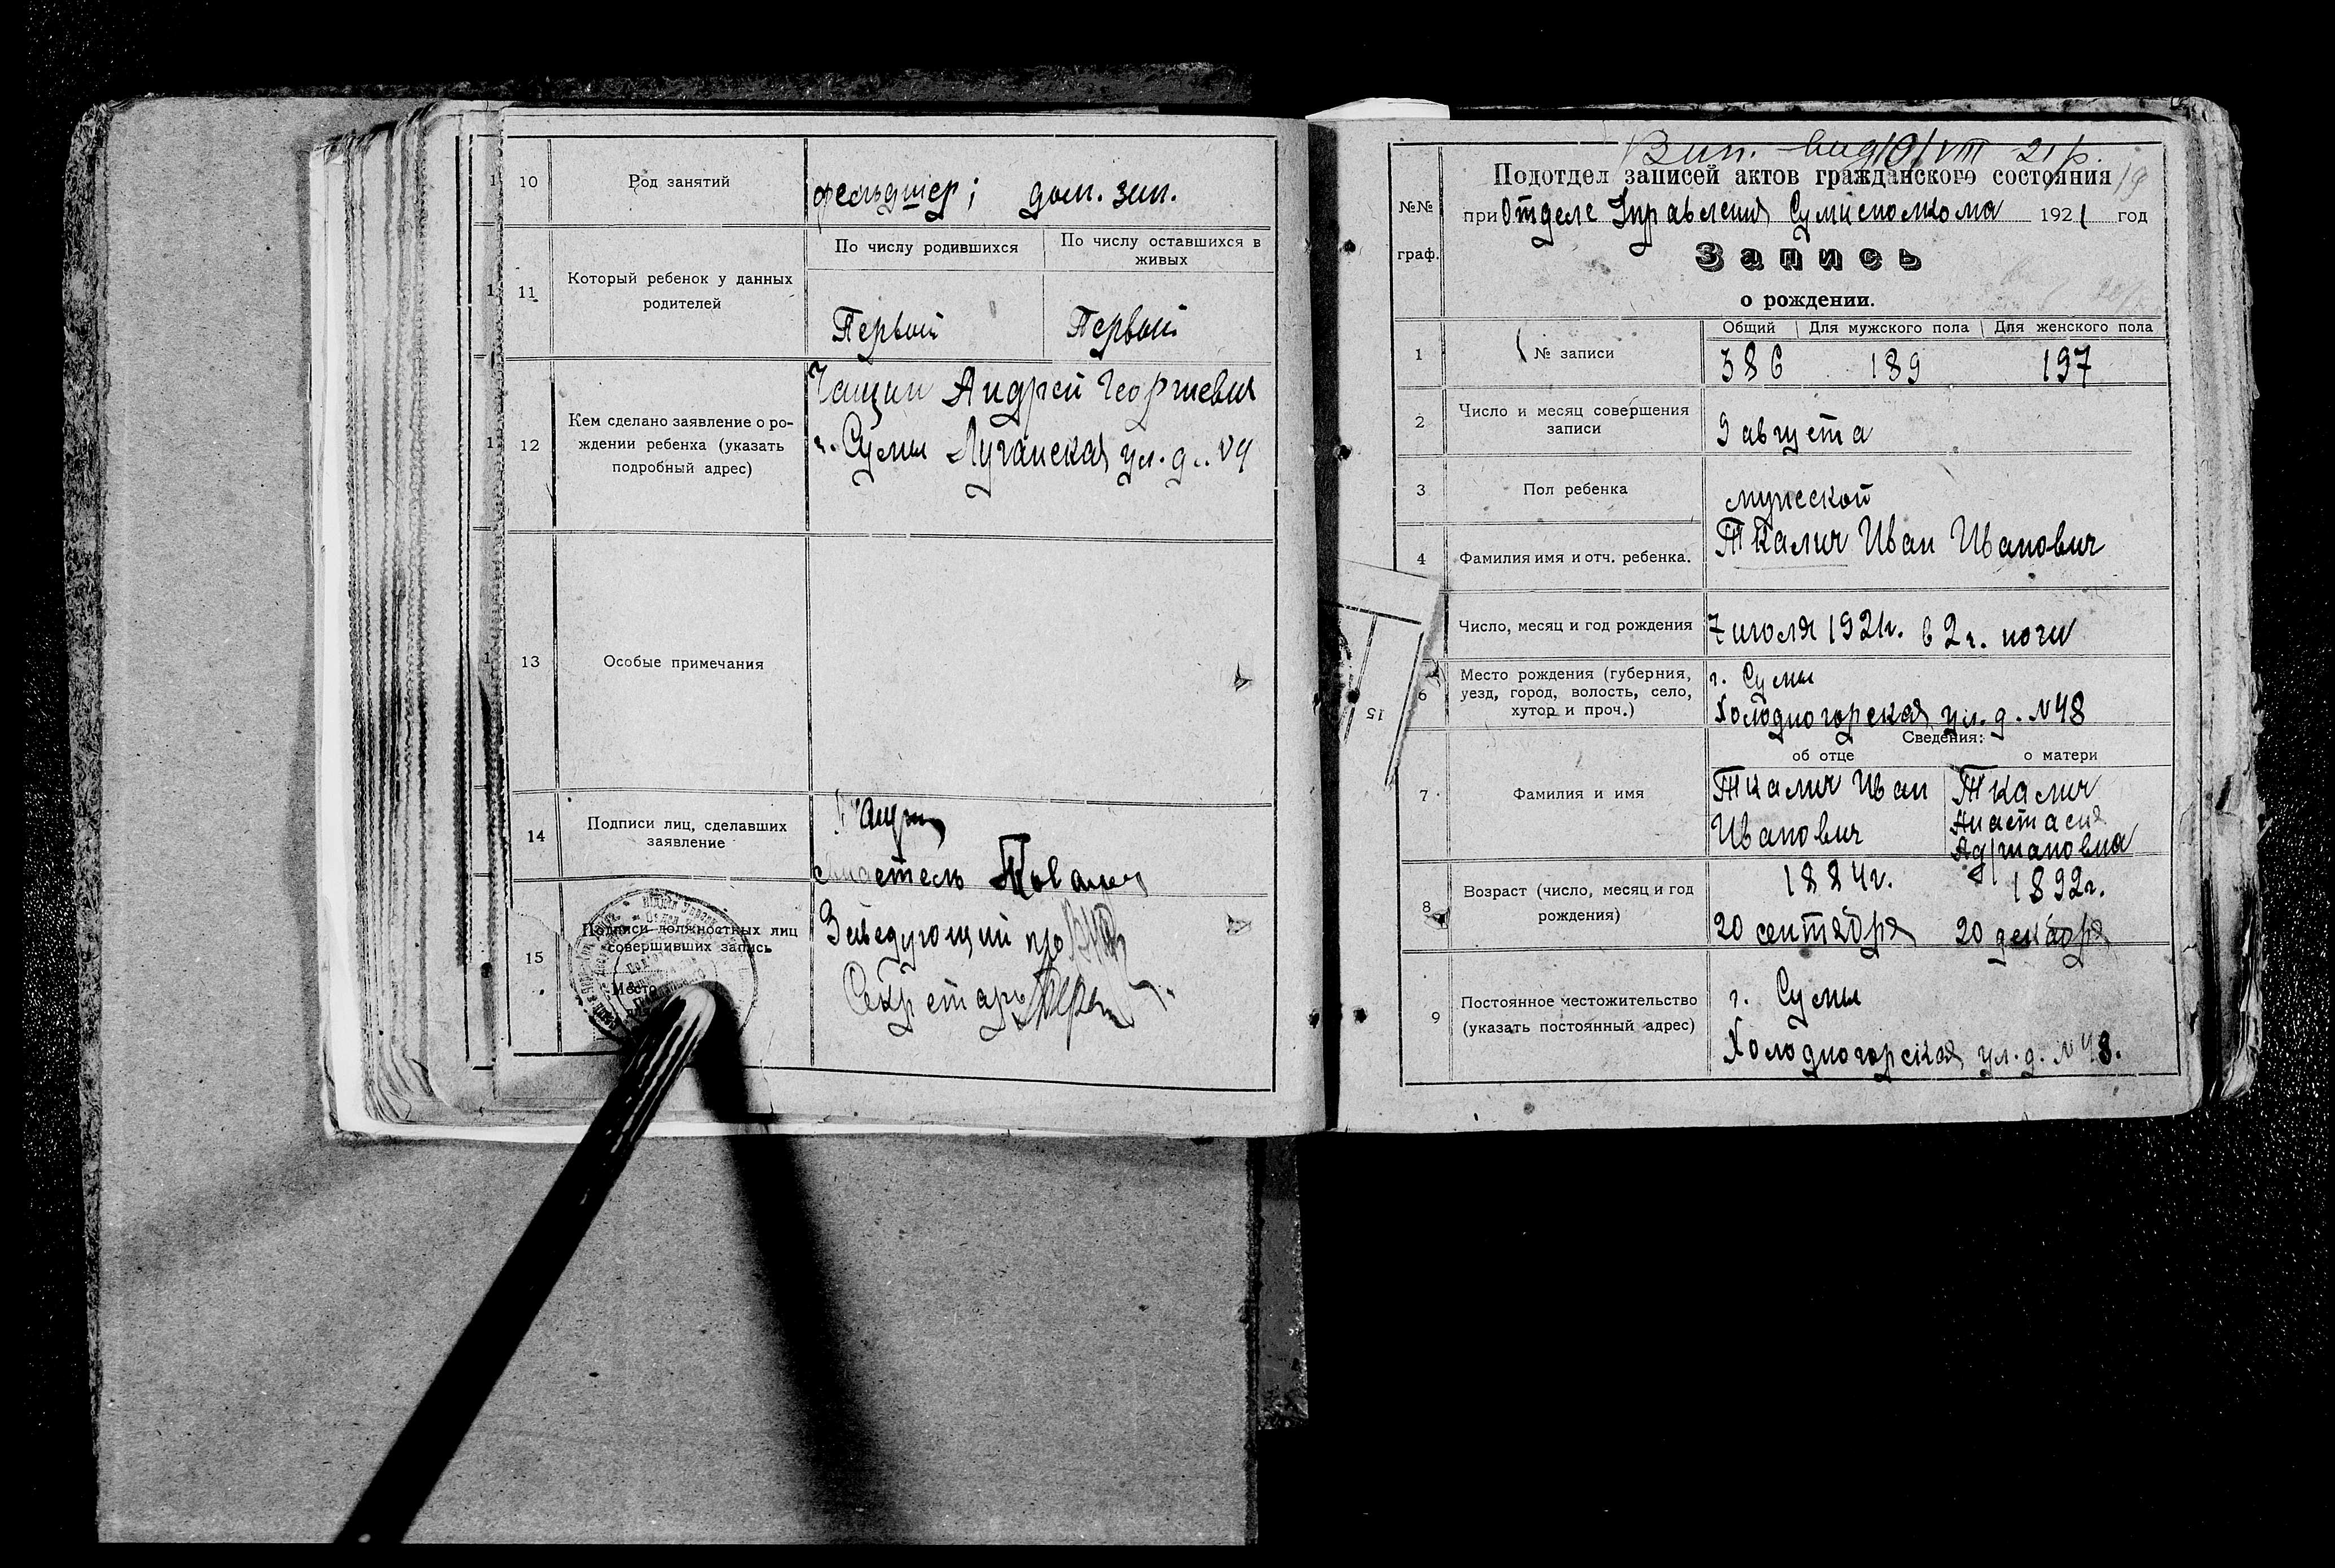 10 Род занятий фельдшер; дом. зан.
11 Который ребенок у данных родителей
По числу родившихся По числу оставшихся в живых
Первый Первый
12 Кем сделано заявление о ро-
ждении ребенка (указать
подробный адрес)
Чащин Андрей Георгиевич
г. Сумы Луганская ул. д.. №4
13 Особые примечания
14 Подписи лиц, сделавших
заявление
свидетель
15 Подписи должностных лиц
совершивших запись
Место
Заведующий п/о
Секретарь
Вип. вид 10/VIII 21 р.
Подотдел записей актов гражданского состояния
при Отделе Управления Сумисполкома 1921 год
№№
граф.
Запись
о рождении.
Общий Для мужского пола Для женского пола
1 № записи 386 189 197
2 Число и месяц совершения
записи
9 августа
3 Пол ребенка мужской
4 Фамилия имя и отч. ребенка. Ткалич Иван Иванович
Число, месяц и год рождения 7 июля 1921г. в 2 ч. ночи
6 Место рождения (губерния,
уезд, город, волость, село,
хутор и проч.)
г. Сумы
Холодногорская ул. д. №48
Сведения:
об отце о матери
7 Фамилия и имя
Ткалич Иван
Иванович
Ткалич
Анастасия
Адриановна
8 Возраст (число, месяц и год
рождения)
1884г. 1892г.
20 сентября 20 декабря
9 Постоянное местожительство
(указать постоянный адрес)
г. Сумы
Холодногорская ул. д. №48.
15